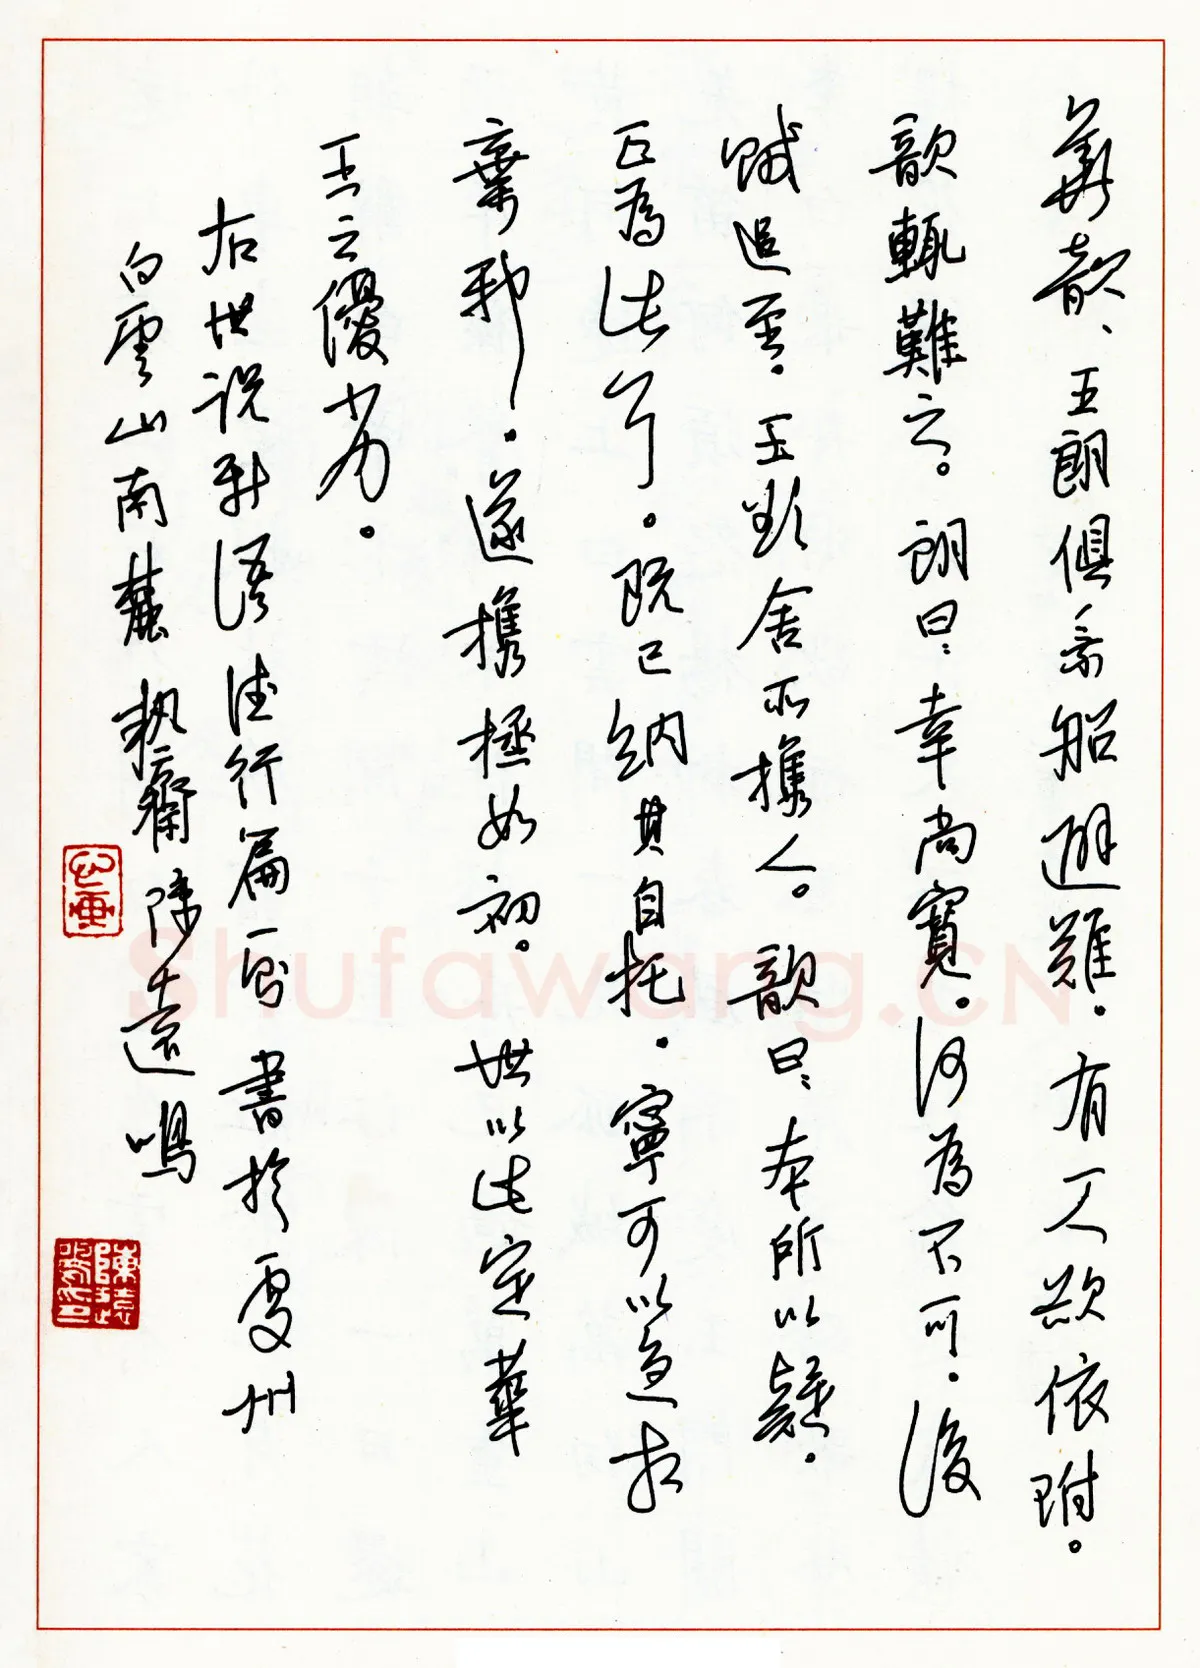 華歆、王朗俱乘船避難。有人欲依附。
歆輒難之。朗曰：幸尚寬。何為不可。後
賊追至。王欲舍所攜人。歆曰：本所以疑。
正為此耳。既已納其自托。寧可以急相
棄邪。遂攜拯如初。世以此定華
王之優劣。
右世说新語德行篇一則 書於處州
白雲山南麓執齋陳遠鳴
陳遠鳴印
Shufawang.CN